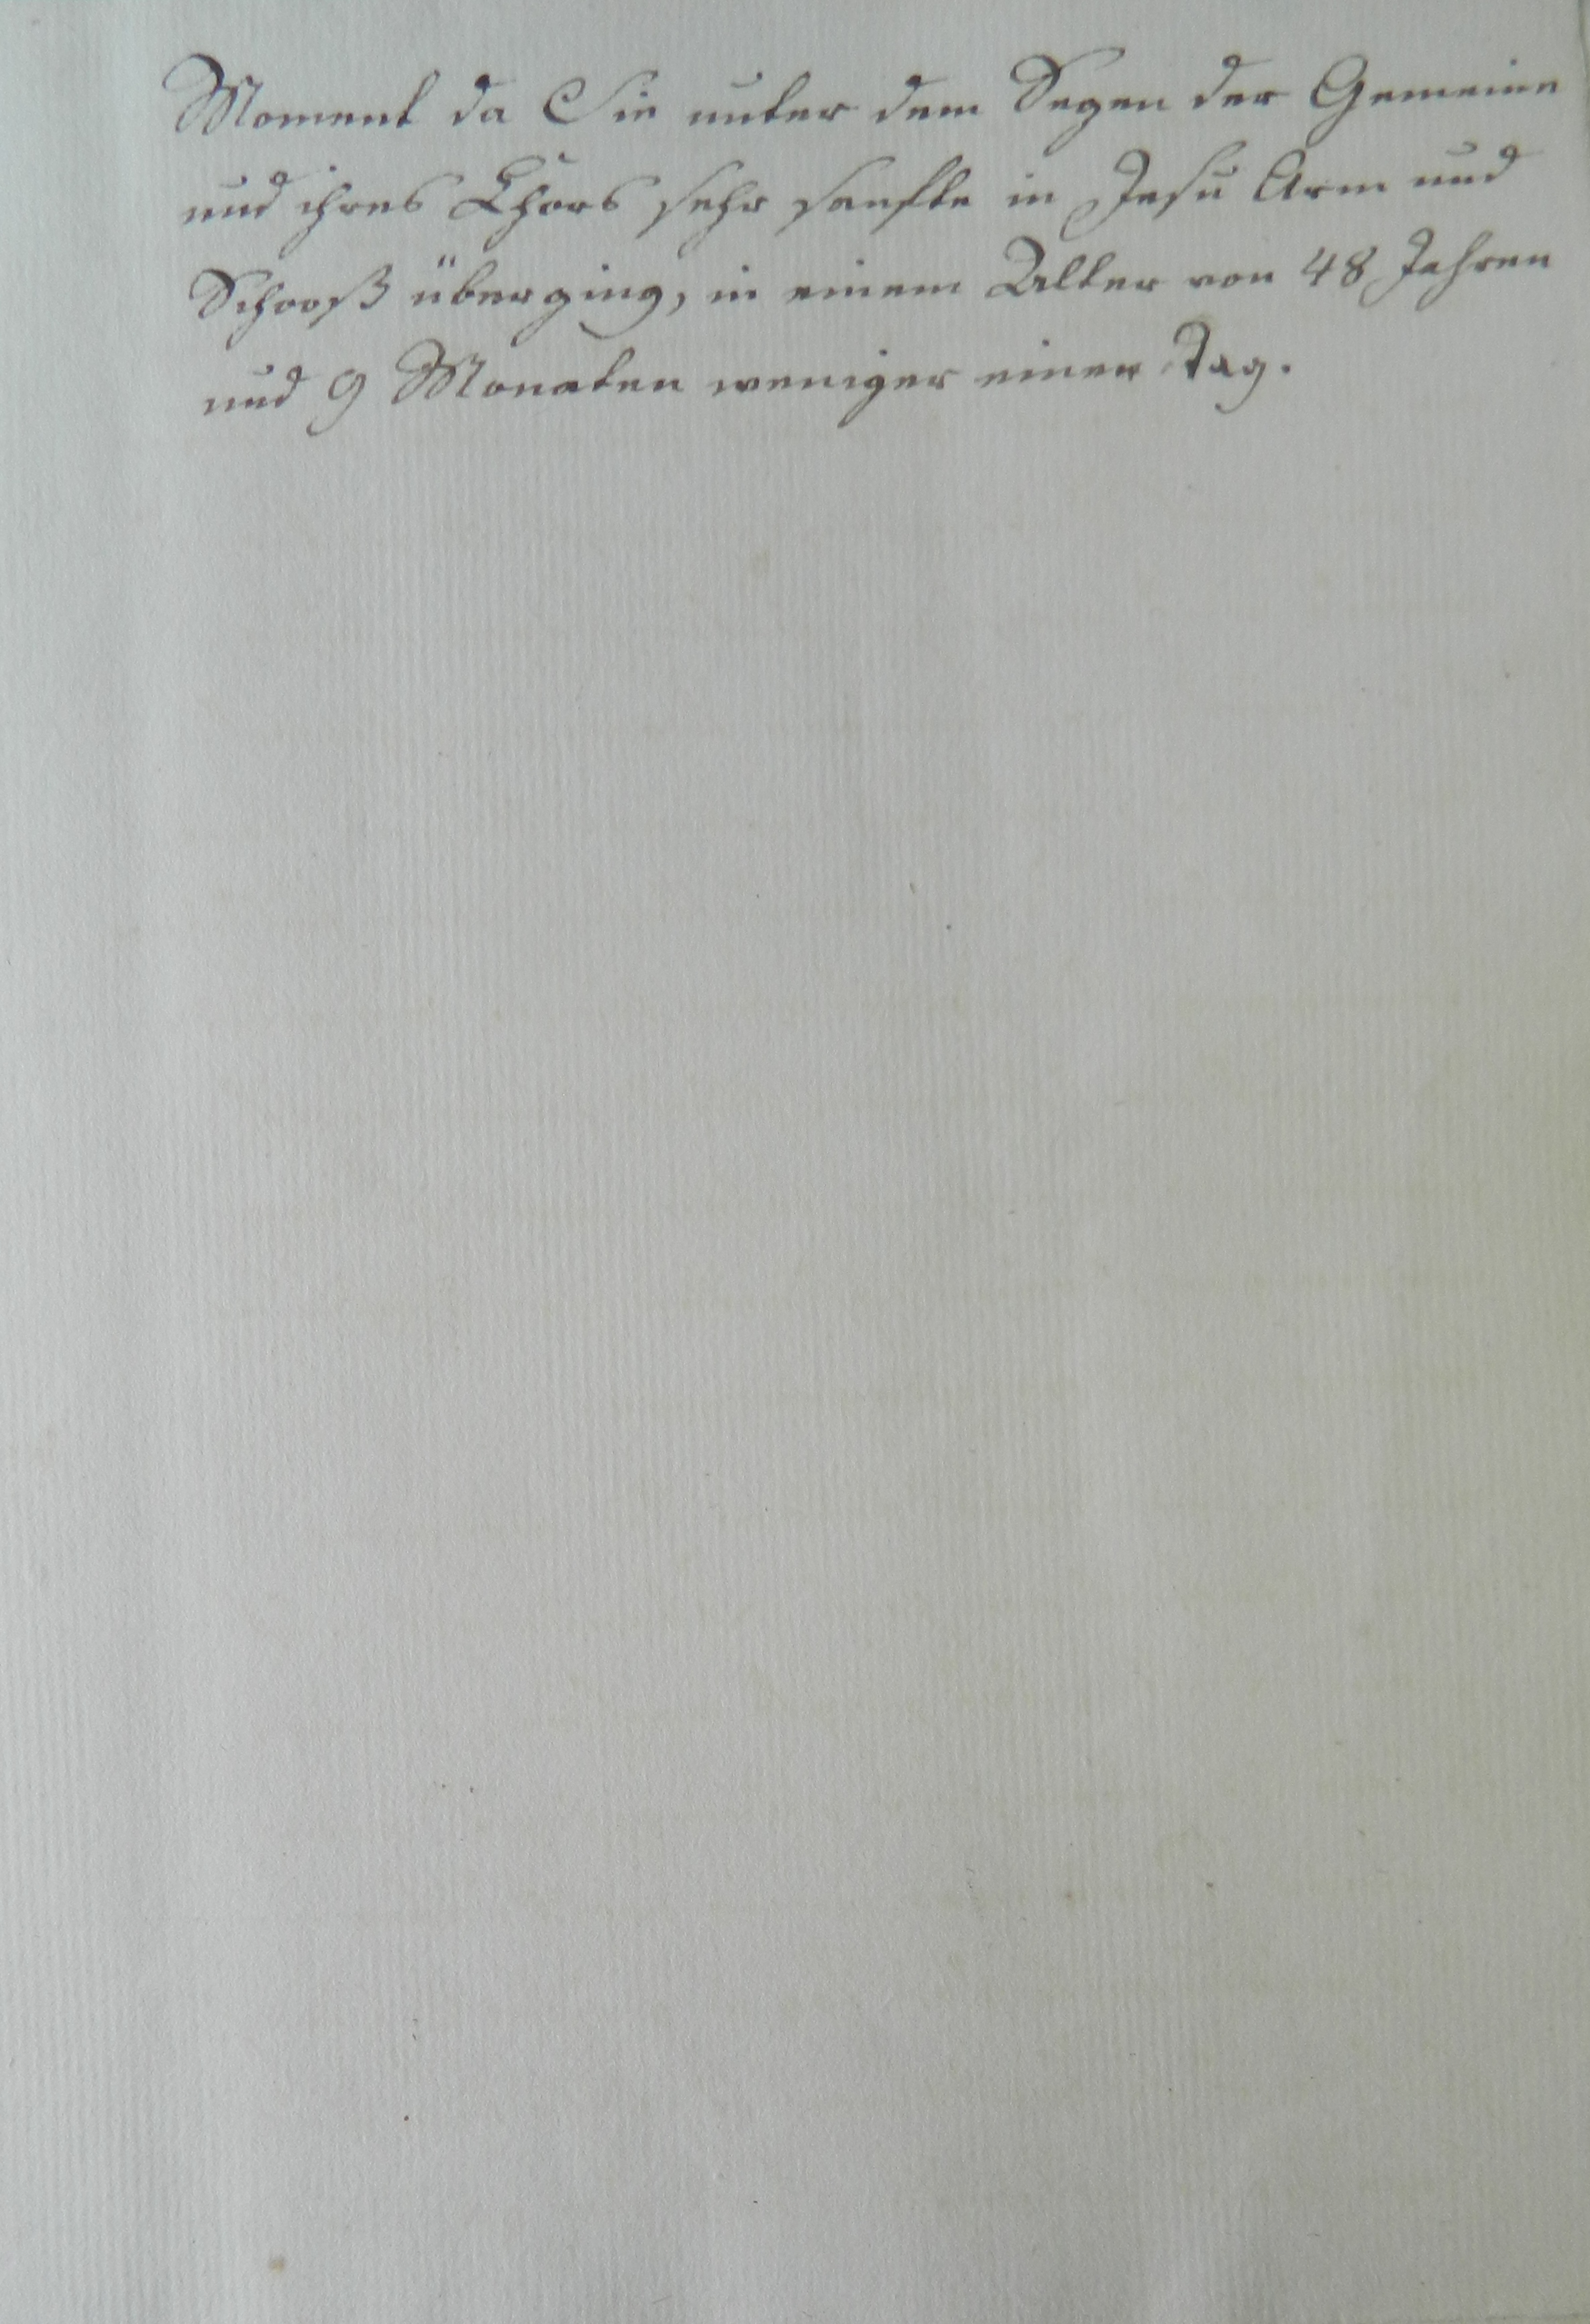 Moment da Sie unter dem Segen der Gemeine
und ihres Chors sehr sanfte in Jesu Arm und
Schooß überging, in einem Alter von 48 Jahren
und 9 Monaten weniger einen Tag.